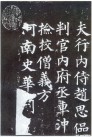 夫行内侍趙思偘
判官内府丞車沖
捡校僧義方
河南史華刻